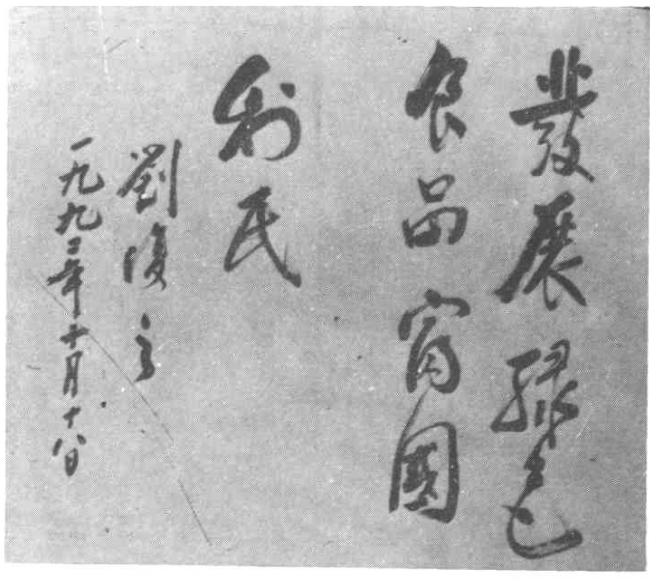 發展綠色
食品富國
利民
劉復之
一九九三年十月十八日